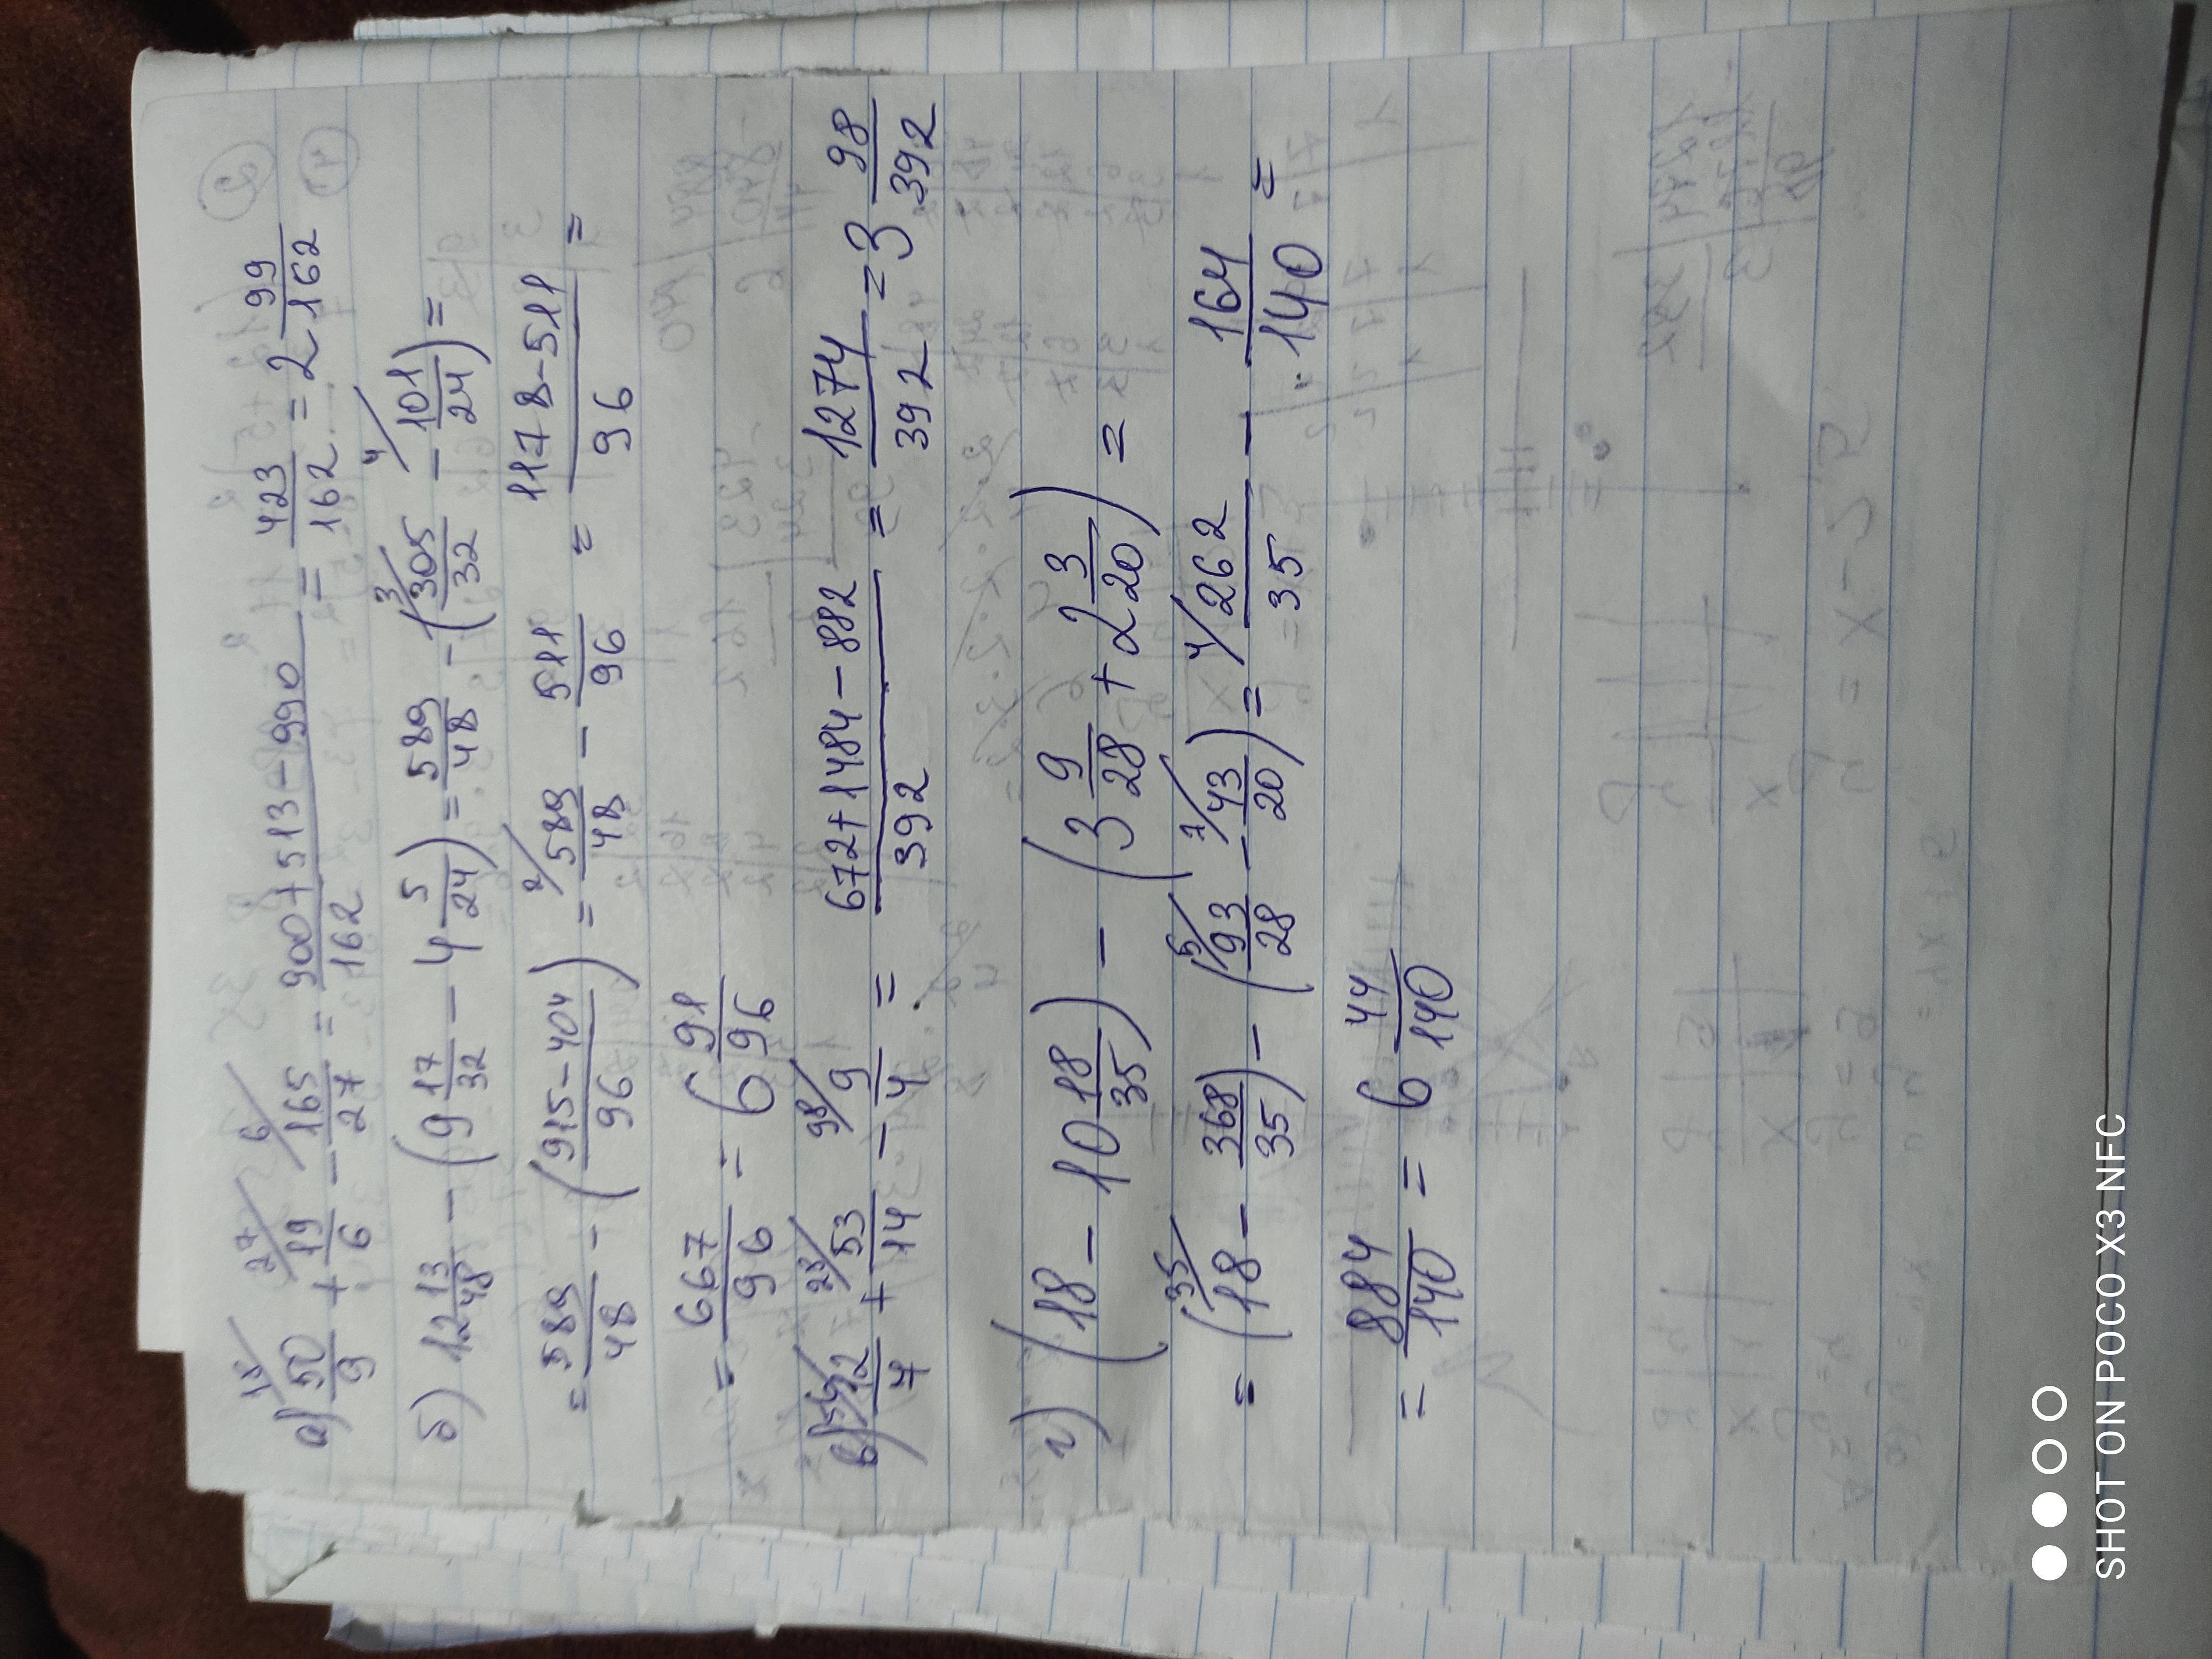 а) 18/ 50/9 + 27/ 19/6 - 6/ 165/27 = 900+513-990/162 = 423/162 = 2 99/162
б) 12 13/48 - (9 17/32 - 4 5/24) = 589/48 - (3/ 305/32 - 4/ 101/24) =
= 589/48 - (915-404/96) = 2/ 589/48 - 511/96 = 1178-511/96 =
= 667/96 = 6 91/96
в) 56/ 12/7 + 28/ 53/14 - 98/ 9/4 = 672+1484-882/392 = 1274/392 = 3 98/392
г) (18 - 10 18/35) - (3 9/28 + 2 3/20) =
= (35/ 18 - 368/35) - (5/ 93/28 - 7/ 43/20) = 4/ 262/35 - 164/140 =
= 884/140 = 6 44/140
SHOT ON POCO X3 NFC